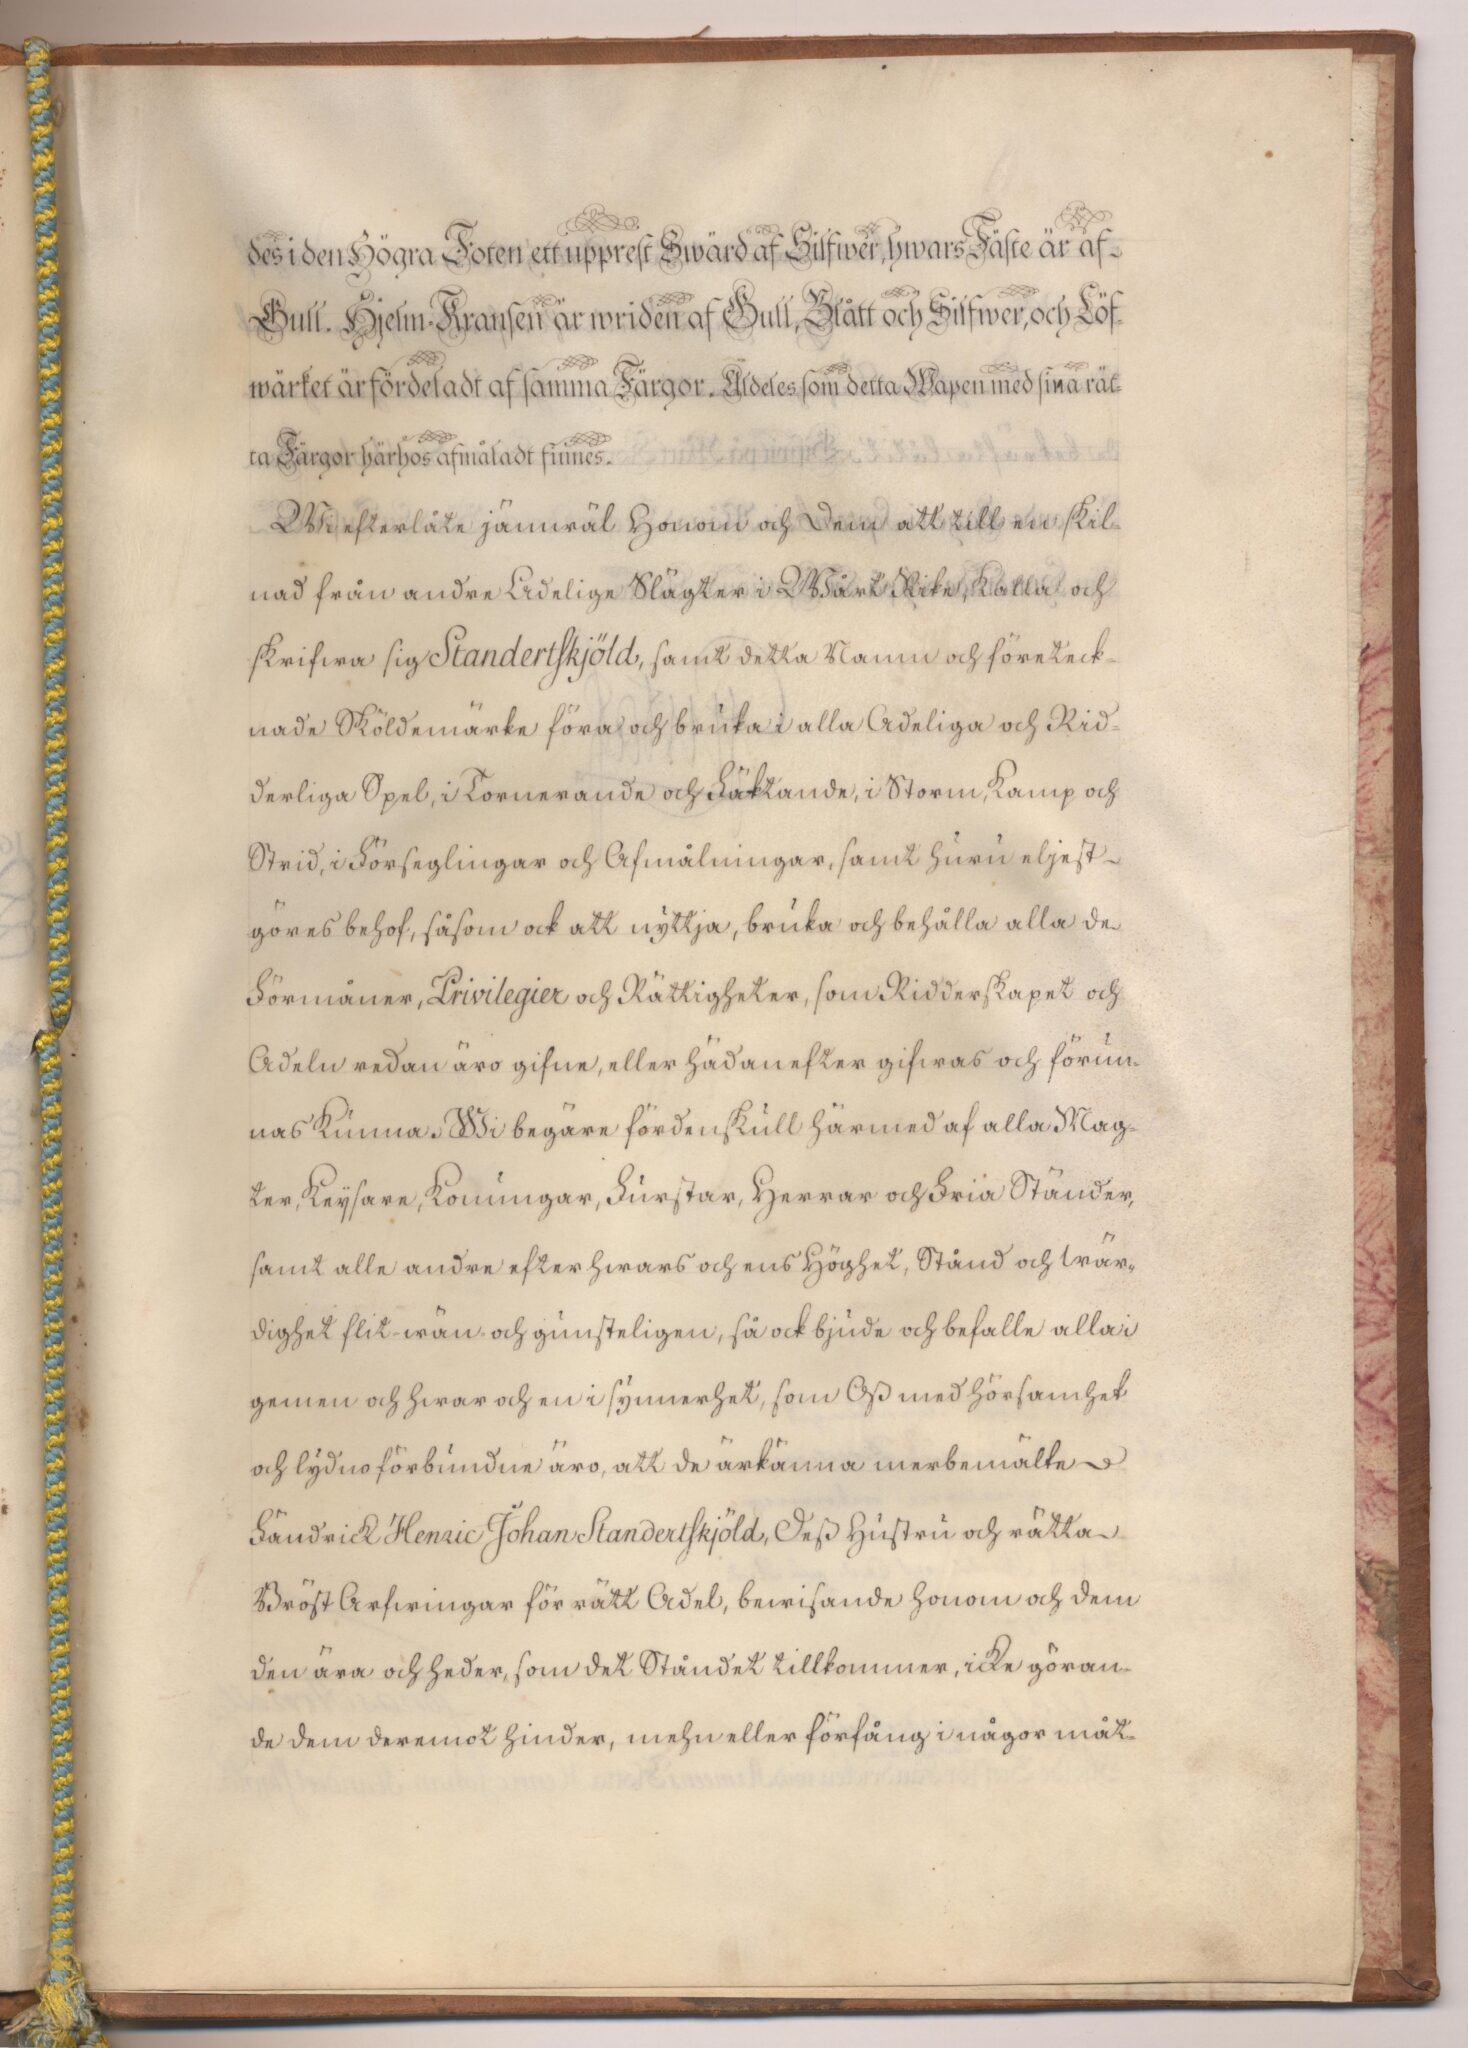 des i den Högra Foten ett upprest Swärd af Silfwer, hwars Fäste är af
Gull. Hjelm-Kransen är wriden af Gull, Blått och Silfwer, och Löf-
wärket är fördeladt af samma Färgor. Aldeles som detta Wapen med sina rät-
ta Färgor härhos afmåladt finnes.
Wi efterlåte jämwäl Honom och Dem att till en skil-
nad från andre Adelige Slägter i Wårt Rike, Kalla och
skrifwa sig Standertskjöld, samt detta Namn och företeck-
nade Sköldemärke föra och bruka i alla Adeliga och Rid-
derliga Spel, i Tornerande och Fäktande, i Storm, Kamp och
Strid, i Förseglingar och Afmålningar, samt huru eljest
göres behof, såsom ock att nyttja, bruka och behålla alla de
Förmåner, Privilegier och Rättigheter, som Ridderskapet och
Adeln redan äro gifne, eller hädanefter gifwas och förun-
nas Kunna. Wi begäre fördenskull härmed af alla Mag-
ter, Keysare, Konungar, Furstar, Herrar och Fria Ständer,
samt alle andre efter hwars och ens Höghet, Stånd och wär-
dighet flit-wän- och gunsteligen, så ock bjude och befalle alla i
gemen och hwar och en i synnerhet, som Oß med hörsamhet
och lydno förbundne äro, att de ärkänna merbemälte
Fändrick Henric Johan Standertskjöld, Deß Hustru och rätta
Bröst Arfwingar för rätt Adel, bewisande honom och dem
den ära och heder, som det Ståndet tillkommer, icke göran-
de dem deremot hinder, mehn eller förfång i någor måt-